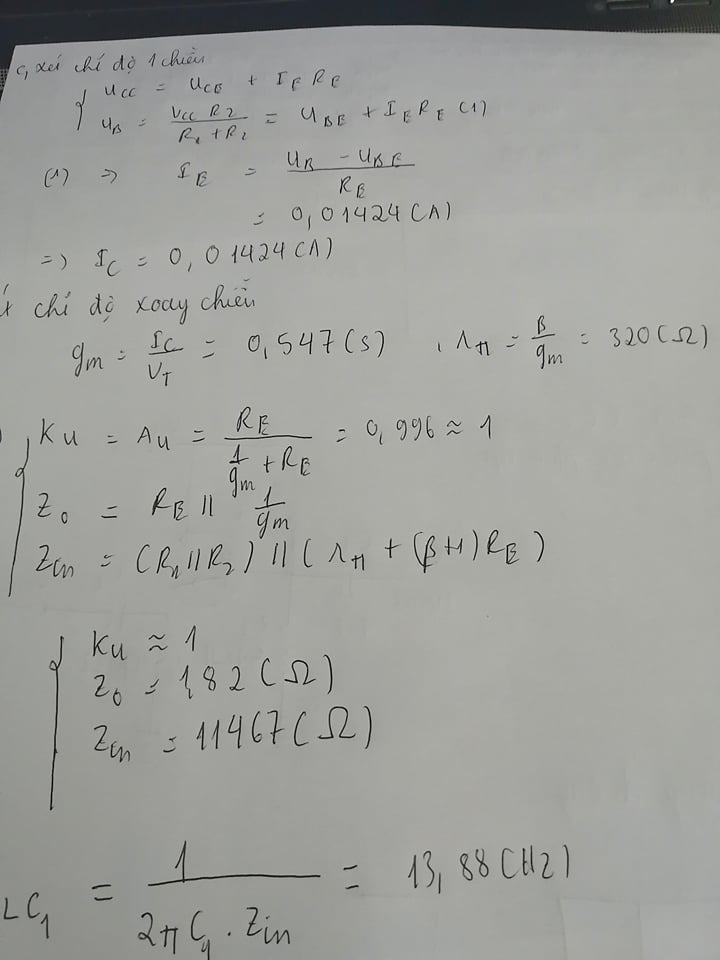 c, xét chế độ 1 chiều
U_CC = U_CE + I_E R_E
U_B = V_CC R_2 / (R_1 + R_2) = U_BE + I_E R_E (1)
(1) => I_E = (U_B - U_BE) / R_E
= 0,01424 (A)
=> I_C = 0,01424 (A)
t chế độ xoay chiều
g_m = I_C / V_T = 0,547 (S) , r_π = β / g_m = 320 (Ω)
K_U = A_U = R_E / (1/g_m + R_E) = 0,996 ≈ 1
Z_0 = R_E // 1/g_m
Z_in = (R_1 // R_2) // (r_π + (β+1) R_E)
K_U ≈ 1
Z_0 = 1,82 (Ω)
Z_in = 11467 (Ω)
LC_1 = 1 / (2π C_1 . Z_in) = 13,88 (Hz)